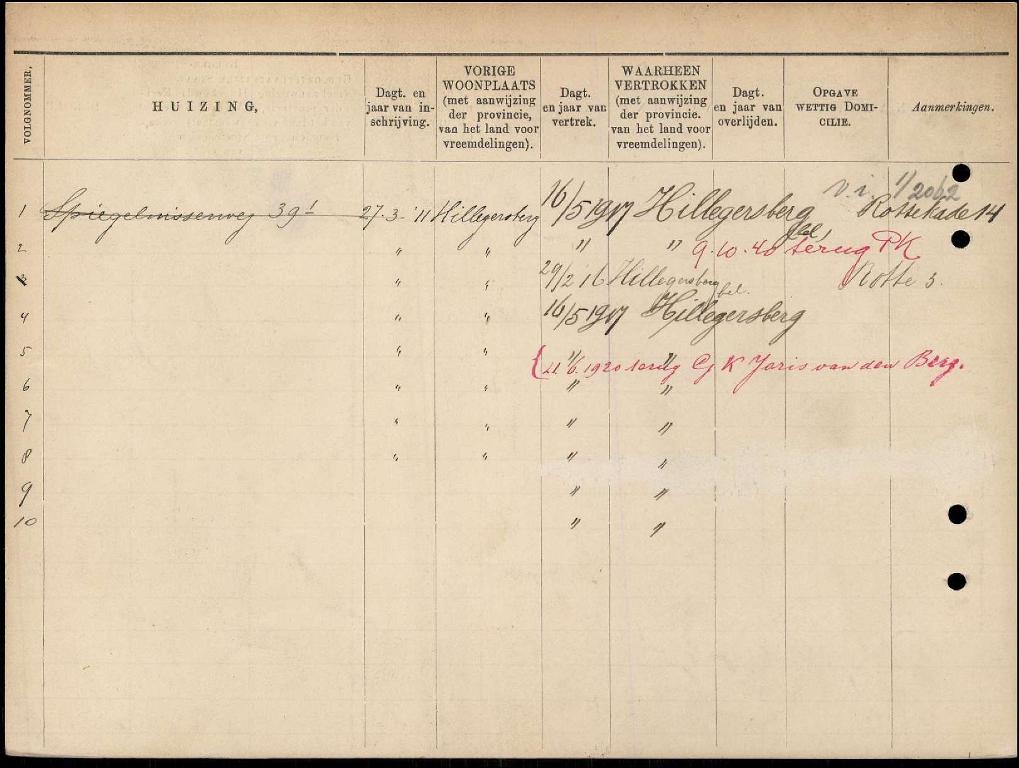 VOLGNOMMER.
HUIZING,
Dagt. en jaar van inschrijving.
VORIGE WOONPLAATS (met aanwijzing der provincie, van het land voor vreemdelingen).
Dagt. en jaar van vertrek.
WAARHEEN VERTROKKEN (met aanwijzing der provincie. van het land voor vreemdelingen).
Dagt. en jaar van overlijden.
OPGAVE WETTIG DOMICILIE.
Aanmerkingen.
v. i. 1/2062
1 Spiegelnisserweg 39¹ 27-3-'11 Hillegersberg 16/5 1917 Hillegersberg Rottekade 14
2 " " " " 9.10.40 terug PK
" " 29/2 '16 Hillegersberg bel. Rotte 3.
4 " " 16/5 1917 Hillegersberg
5 " " " "
{21/6.1920 terug GK Joris van den Berg.
6 " " " "
7 " " " "
8 " " " "
9 " "
10 " "